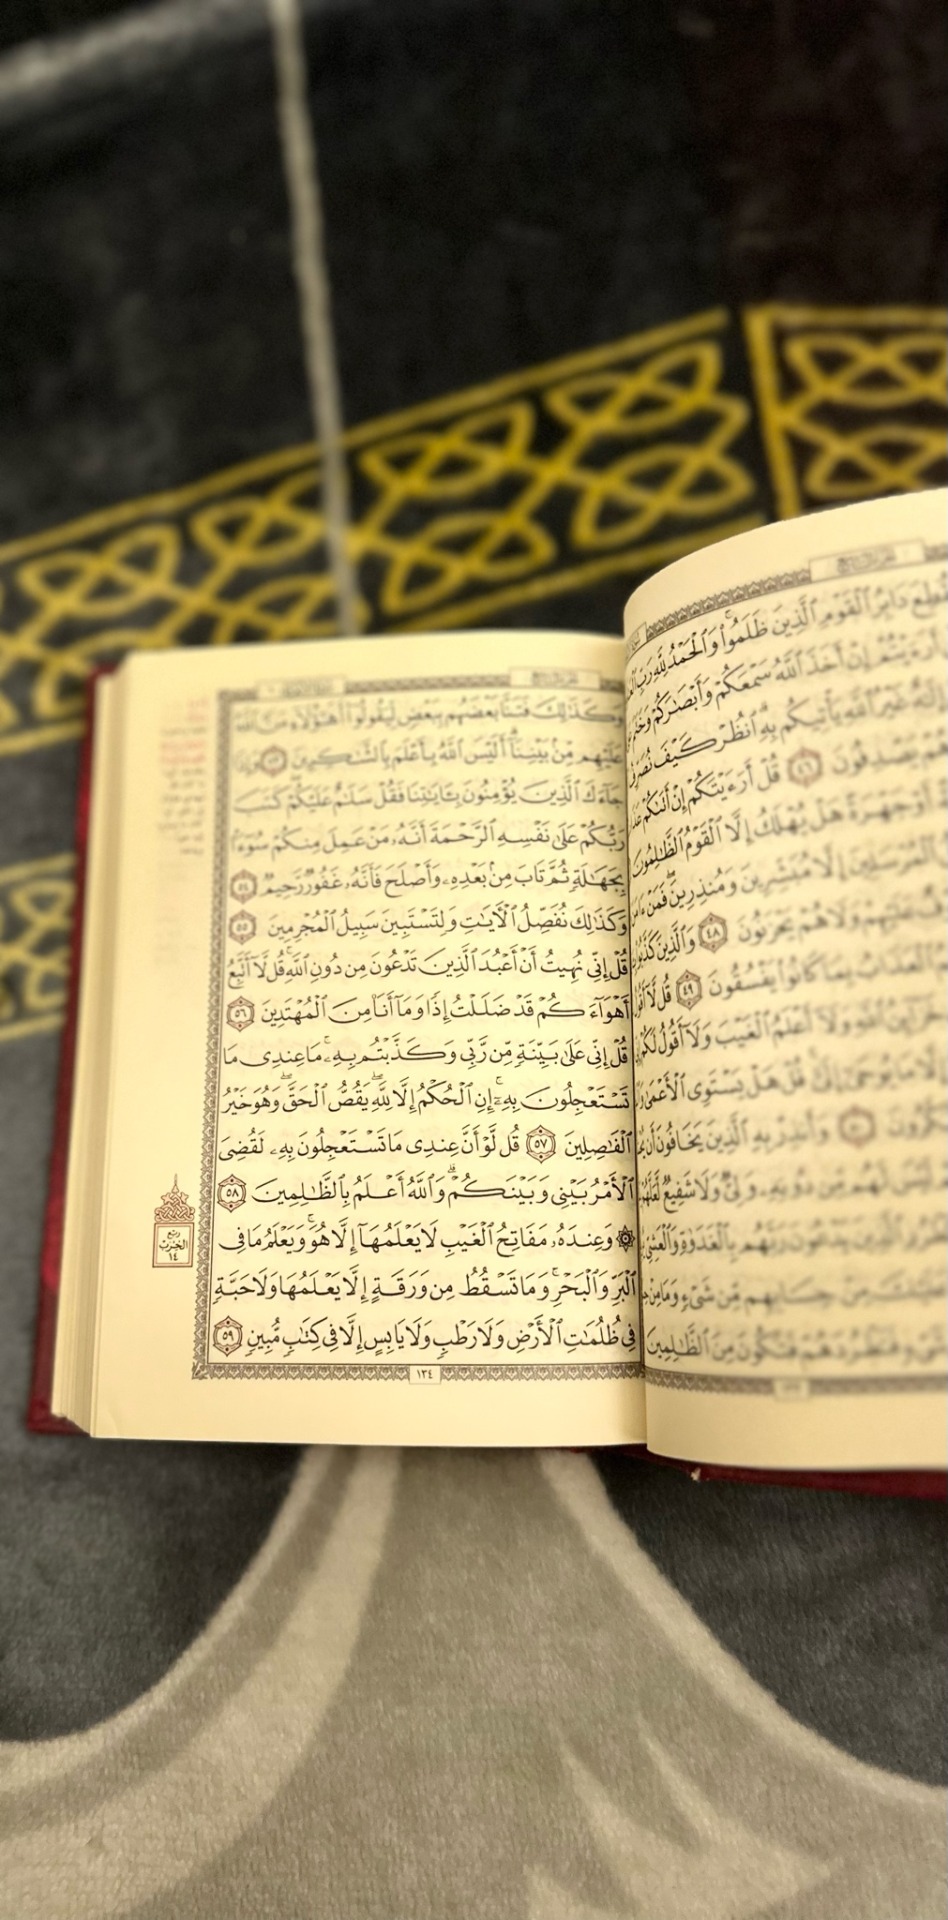 فَقُطِعَ دَابِرُ ٱلْقَوْمِ ٱلَّذِينَ ظَلَمُوا۟ ۚ وَٱلْحَمْدُ لِلَّهِ رَبِّ
أَرَءَيْتُمْ إِنْ أَخَذَ ٱللَّهُ سَمْعَكُمْ وَأَبْصَٰرَكُمْ وَخَتَمَ
إِلَٰهٌ غَيْرُ ٱللَّهِ يَأْتِيكُم بِهِ ۗ ٱنظُرْ كَيْفَ نُصَرِّفُ
يَصْدِفُونَ ٤٦ قُلْ أَرَءَيْتَكُمْ إِنْ أَتَىٰكُمْ
أَوْ جَهْرَةً هَلْ يُهْلَكُ إِلَّا ٱلْقَوْمُ ٱلظَّٰلِمُونَ
ٱلْمُرْسَلِينَ إِلَّا مُبَشِّرِينَ وَمُنذِرِينَ ۖ فَمَنْ ءَامَنَ
عَلَيْهِمْ وَلَا هُمْ يَحْزَنُونَ ٤٨ وَٱلَّذِينَ كَذَّبُوا۟
ٱلْعَذَابُ بِمَا كَانُوا۟ يَفْسُقُونَ ٤٩ قُل لَّآ أَقُولُ
خَزَآئِنُ ٱللَّهِ وَلَآ أَعْلَمُ ٱلْغَيْبَ وَلَآ أَقُولُ لَكُمْ
إِلَّا مَا يُوحَىٰٓ إِلَىَّ ۚ قُلْ هَلْ يَسْتَوِى ٱلْأَعْمَىٰ
٥٠ وَأَنذِرْ بِهِ ٱلَّذِينَ يَخَافُونَ أَن
لَيْسَ لَهُم مِّن دُونِهِۦ وَلِىٌّ وَلَا شَفِيعٌ لَّعَلَّهُمْ
يَدْعُونَ رَبَّهُم بِٱلْغَدَوٰةِ وَٱلْعَشِىِّ
مِنْ حِسَابِهِم مِّن شَىْءٍ وَمَا مِنْ
فَتَطْرُدَهُمْ فَتَكُونَ مِنَ ٱلظَّٰلِمِينَ
وَكَذَٰلِكَ فَتَنَّا بَعْضَهُم بِبَعْضٍ لِّيَقُولُوٓا۟ أَهَٰٓؤُلَآءِ مَنَّ ٱللَّهُ
عَلَيْهِم مِّنۢ بَيْنِنَآ ۗ أَلَيْسَ ٱللَّهُ بِأَعْلَمَ بِٱلشَّٰكِرِينَ ٥٣ وَإِذَا
جَآءَكَ ٱلَّذِينَ يُؤْمِنُونَ بِـَٔايَٰتِنَا فَقُلْ سَلَٰمٌ عَلَيْكُمْ ۖ كَتَبَ
رَبُّكُمْ عَلَىٰ نَفْسِهِ ٱلرَّحْمَةَ ۖ أَنَّهُۥ مَنْ عَمِلَ مِنكُمْ سُوٓءًۢا
بِجَهَٰلَةٍ ثُمَّ تَابَ مِنۢ بَعْدِهِۦ وَأَصْلَحَ فَأَنَّهُۥ غَفُورٌ رَّحِيمٌ ٥٤
وَكَذَٰلِكَ نُفَصِّلُ ٱلْـَٔايَٰتِ وَلِتَسْتَبِينَ سَبِيلُ ٱلْمُجْرِمِينَ ٥٥
قُلْ إِنِّى نُهِيتُ أَنْ أَعْبُدَ ٱلَّذِينَ تَدْعُونَ مِن دُونِ ٱللَّهِ ۚ قُل لَّآ أَتَّبِعُ
أَهْوَآءَكُمْ ۙ قَدْ ضَلَلْتُ إِذًا وَمَآ أَنَا۠ مِنَ ٱلْمُهْتَدِينَ ٥٦
قُلْ إِنِّى عَلَىٰ بَيِّنَةٍ مِّن رَّبِّى وَكَذَّبْتُم بِهِۦ ۚ مَا عِندِى مَا
تَسْتَعْجِلُونَ بِهِۦٓ ۚ إِنِ ٱلْحُكْمُ إِلَّا لِلَّهِ ۖ يَقُصُّ ٱلْحَقَّ ۖ وَهُوَ خَيْرُ
ٱلْفَٰصِلِينَ ٥٧ قُل لَّوْ أَنَّ عِندِى مَا تَسْتَعْجِلُونَ بِهِۦ لَقُضِىَ
ٱلْأَمْرُ بَيْنِى وَبَيْنَكُمْ ۗ وَٱللَّهُ أَعْلَمُ بِٱلظَّٰلِمِينَ ٥٨
۞ وَعِندَهُۥ مَفَاتِحُ ٱلْغَيْبِ لَا يَعْلَمُهَآ إِلَّا هُوَ ۚ وَيَعْلَمُ مَا فِى
ٱلْبَرِّ وَٱلْبَحْرِ ۚ وَمَا تَسْقُطُ مِن وَرَقَةٍ إِلَّا يَعْلَمُهَا وَلَا حَبَّةٍ
فِى ظُلُمَٰتِ ٱلْأَرْضِ وَلَا رَطْبٍ وَلَا يَابِسٍ إِلَّا فِى كِتَٰبٍ مُّبِينٍ ٥٩
١٣٤
ربع
الحزب
١٤